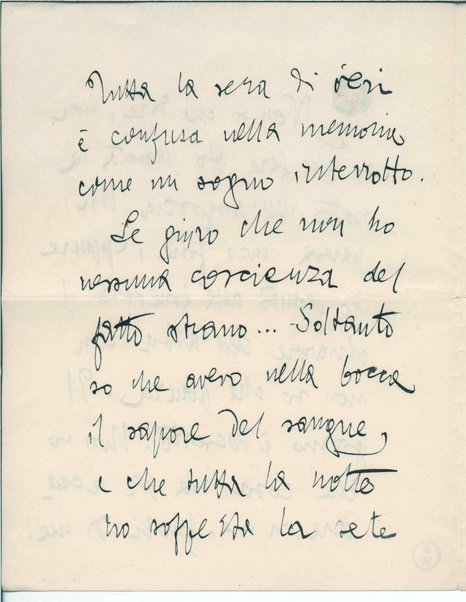 Tutta la sera di ieri
è confusa nella memoria
come un sogno interrotto.
Le giuro che non ho
nessuna coscienza del
fatto strano... Soltanto
so che avevo nella bocca
il sapore del sangue,
e che tutta la notte
ho sofferta la sete